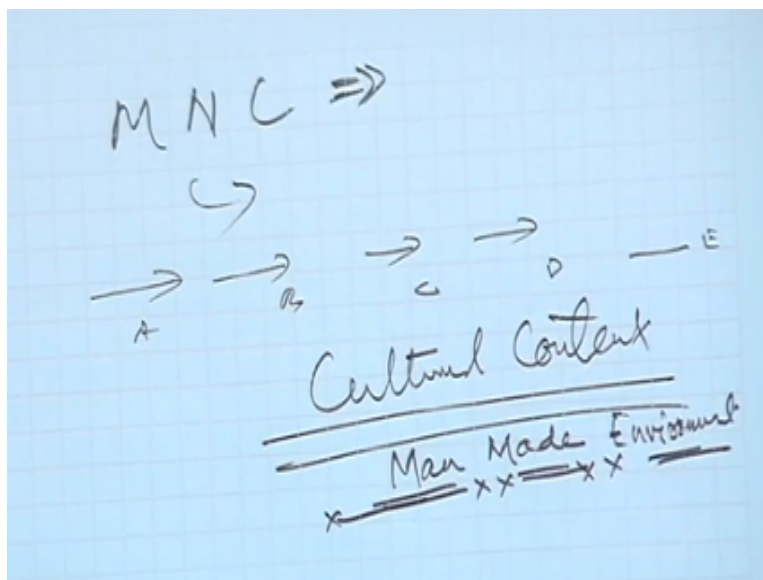 MNC ⇒
↪
→ → → → —
A B C D E
Cultural Context
Man Made Enviornment